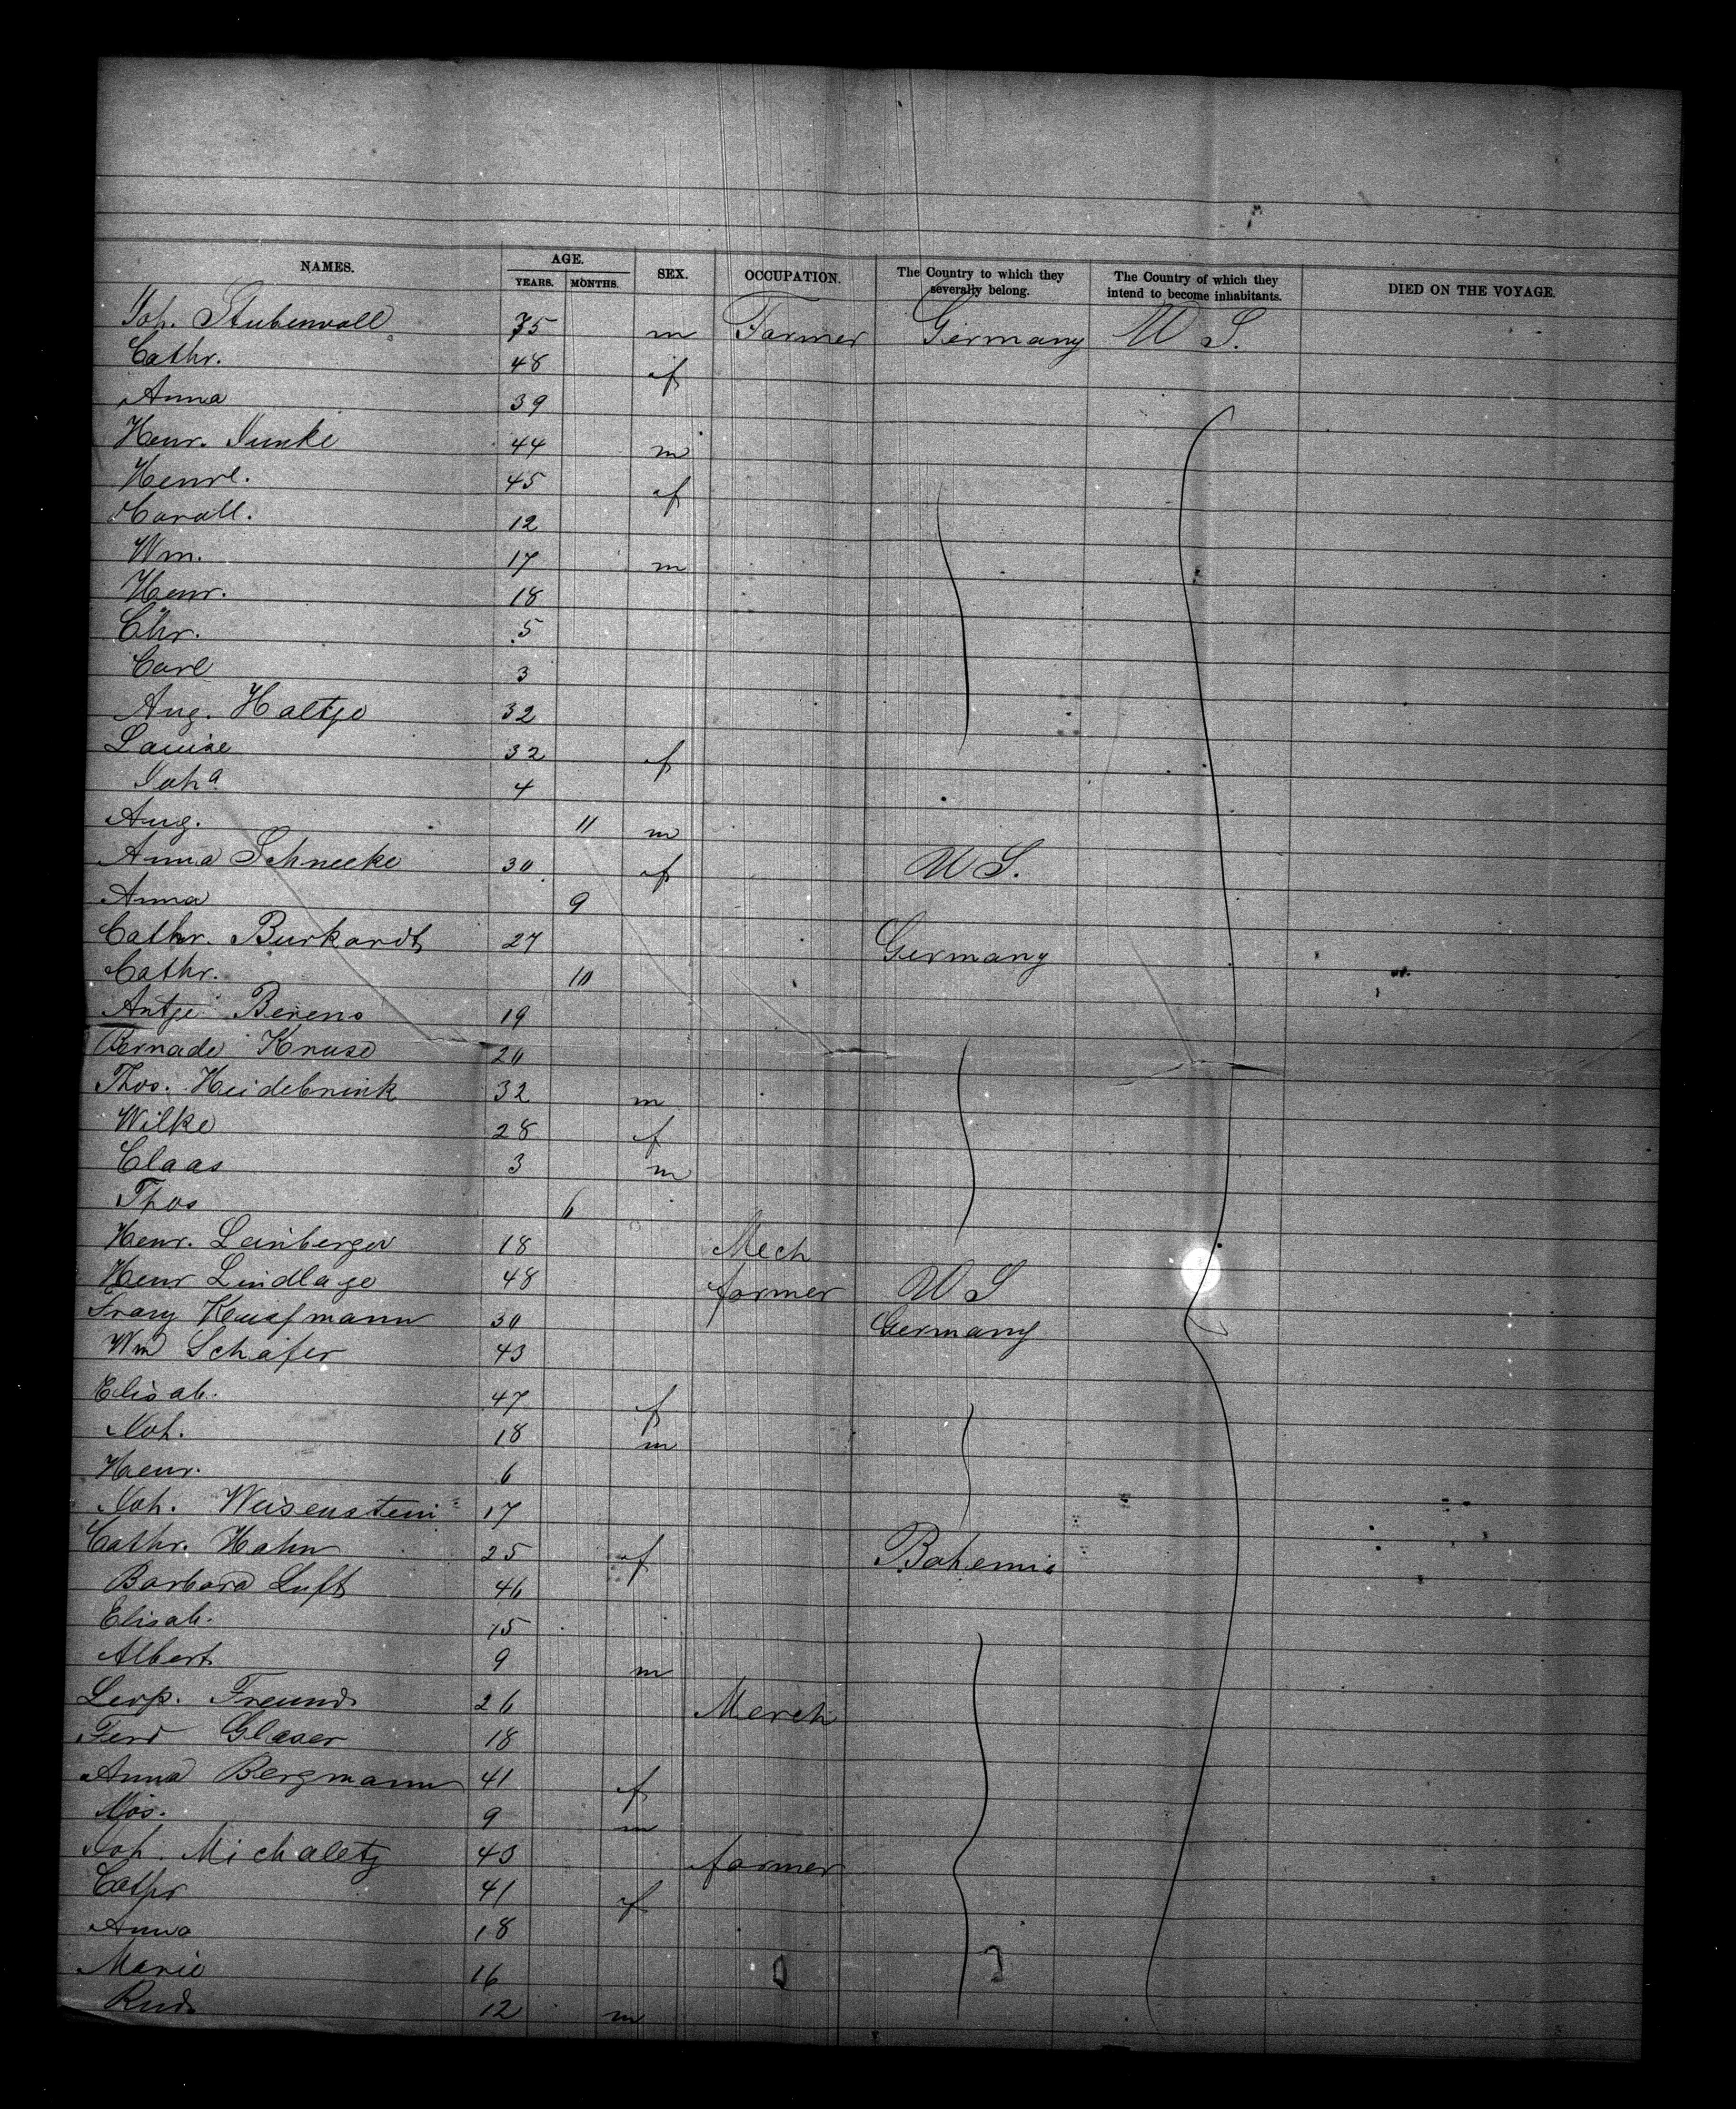 NAMES. AGE. SEX. OCCUPATION. The Country to which they severally belong. The Country of which they intend to become inhabitants. DIED ON THE VOYAGE.
YEARS. MONTHS.
Joh. Stubenvoll 75 m Farmer Germany U S.
Cathr. 48 f
Anna 39
Henr. Junke 44 m
Henrl. 45 f
Caroll. 12
Wm. 17 m
Henr. 18
Chr. 5
Carl 3
Aug. Haltje 32
Louise 32 f
Joh a 4
Aug. 11 m
Anna Schneeke 30 f U S.
Anna 9
Cathr. Burkardt 27 Germany
Cathr. 10
Antje Berens 19
Bernade Kruse 20
Thos. Heidebrink 32 m
Wilke 28 f
Claas 3 m
Thos 6
Henr. Leinberger 18 Mech
Henr Lindlage 48 farmer U S
Franz 30 Germany
Wm Schäfer 43
Elisab. 47 f
Joh. 18 m
Henr. 6
Joh. Weisenstein 17
Cathr. Hahn 25 f Bohemia
Barbara Luft 46
Elisab. 15
Albert 9 m
Leop. Freund 26 Merch
Ferd Glaser 18
Anna Bergmann 41 f
Jos. 9 m
Joh. Michaletz 43 farmer
Cathr 41 f
Anna 18
Marie 16
Rud 12 m